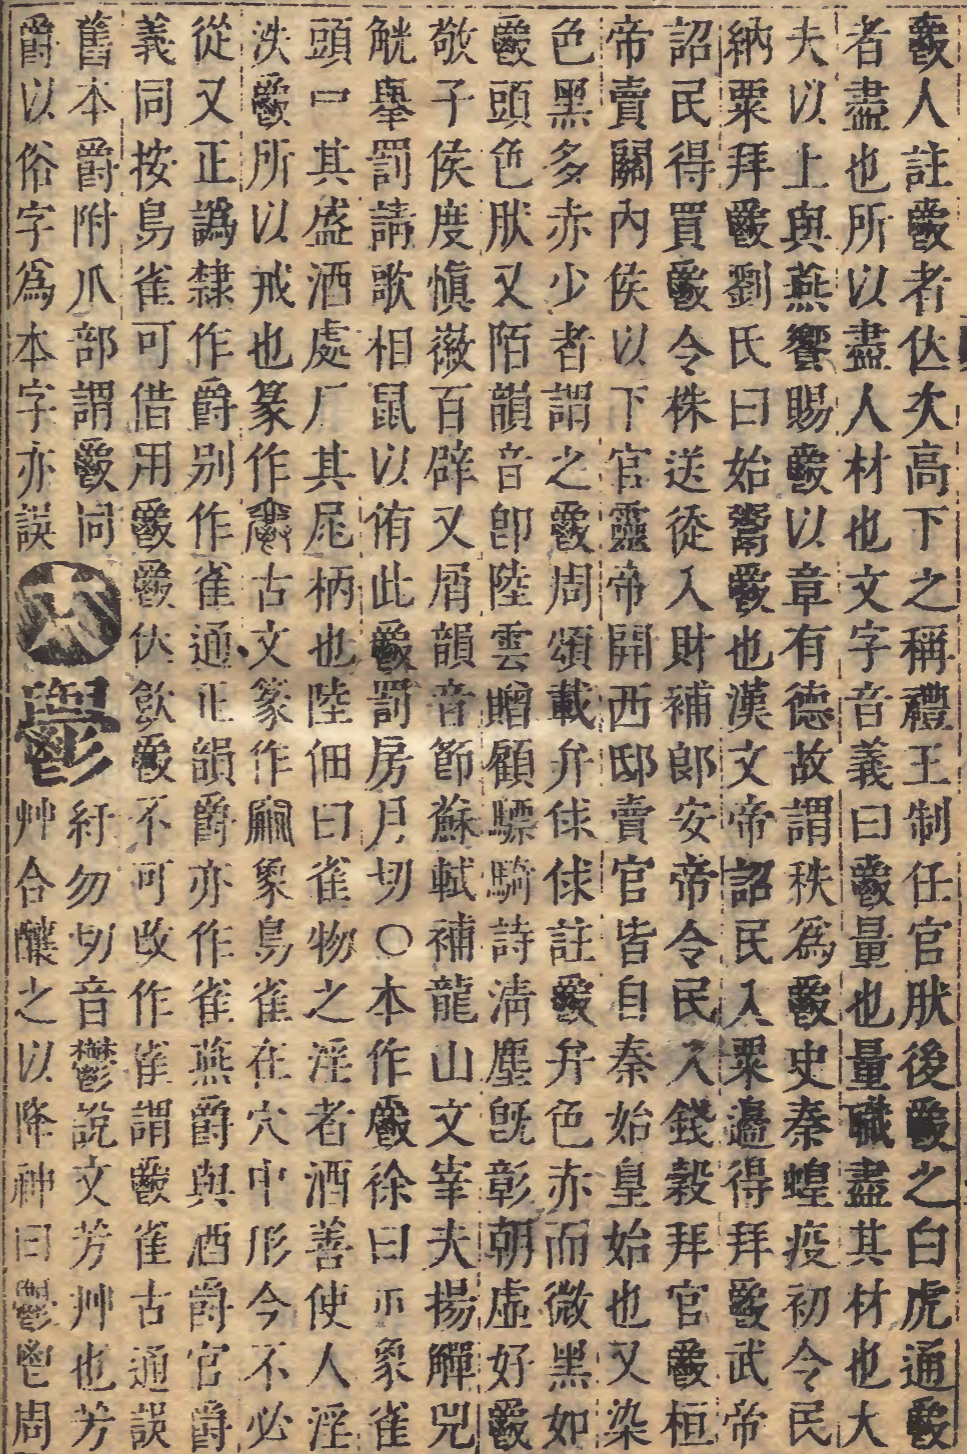 爵人註爵者位次高下之稱禮王制任官肰後爵之白虎通爵
者盡也所以盡人材也文字音義曰爵量也量職盡其材也大
夫以上與燕饗賜爵以章有德故謂秩爲爵史秦蝗疫初令民
納粟拜爵劉氏曰始鬻爵也漢文帝詔民入粟邊得拜爵武帝
詔民得買爵令株送從入財補郎安帝令民入錢穀拜官爵桓
帝賣關內侯以下官靈帝開西邸賣官皆自秦始皇始也又染
色黑多赤少者謂之爵周頌載弁俅俅註爵弁色赤而微黑如
爵頭色肰又陌韻音卽陸雲贈顧驃騎詩淸塵旣彰朝虛好爵
敬子侯度愼徽百辟又屑韻音節蘇軾補龍山文峯夫揚觶兕
觥舉罰請歌相鼠以侑此爵罰房月切〇本作爵徐曰𠕋象雀
頭曰其盛酒處厂其尾柄也陸佃曰雀物之淫者酒善使人淫
泆爵所以戒也篆作爵古文篆作象鳥雀在穴中形今不必
從又正譌隸作爵别作雀通正韻爵亦作雀燕爵與酒爵官爵
義同按鳥雀可借用爵爵位飲爵不可改作雀謂爵雀古通誤
舊本爵附爪部謂爵同 鬱 紆勿切音鬱說文芳艸也芳
爵以俗字爲本字亦誤 艸合釀之以降神曰鬱鬯周